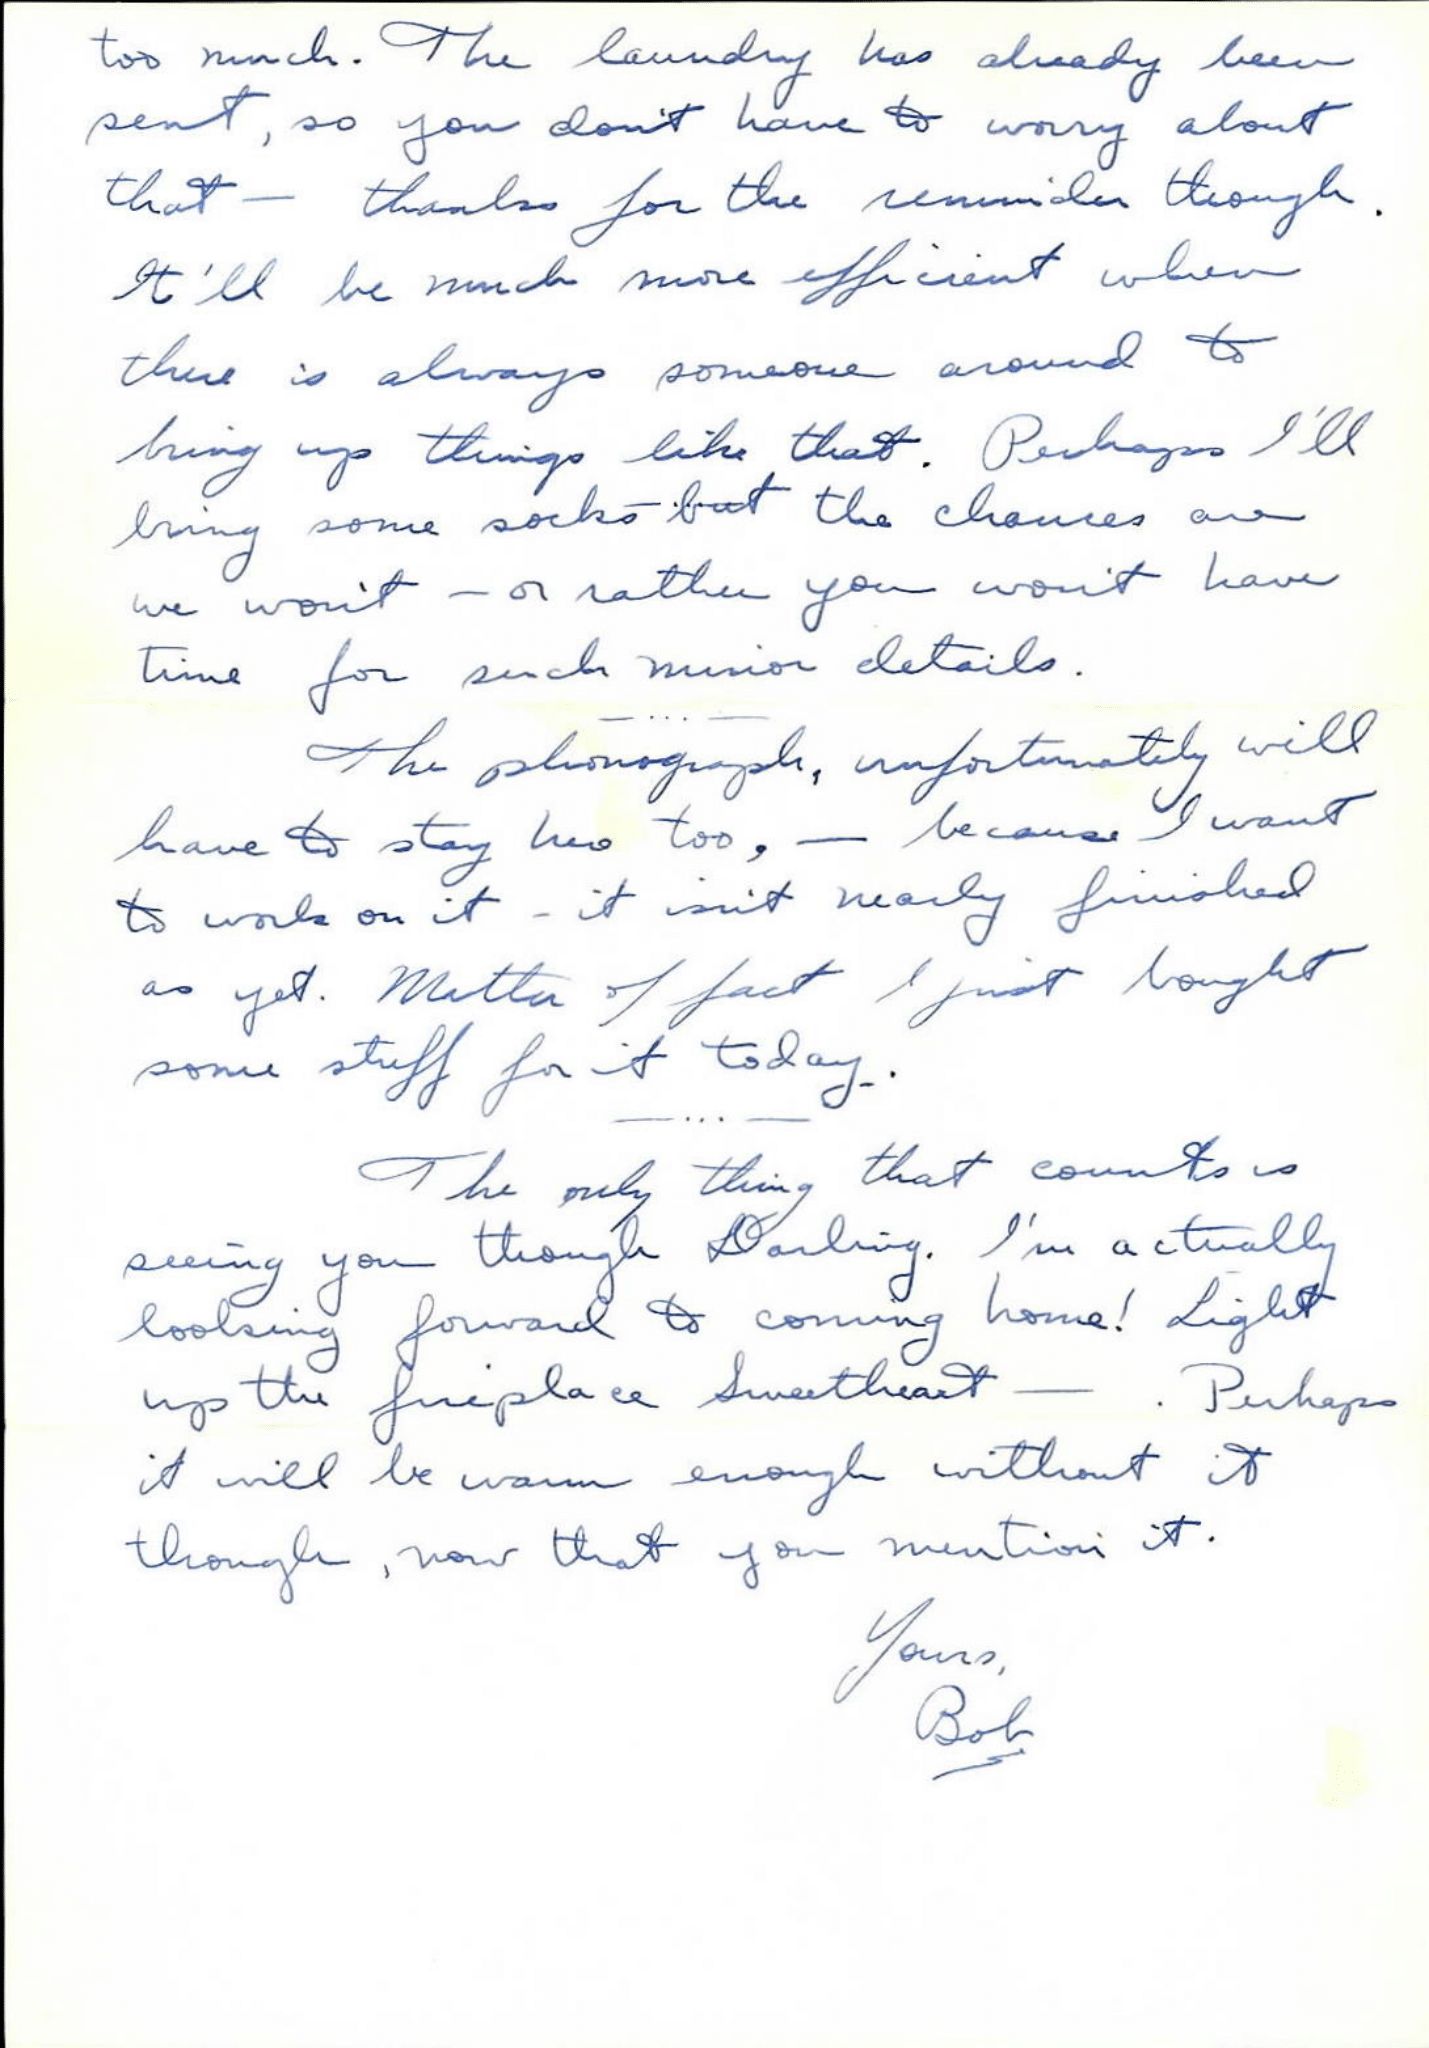 too much. The laundry has already been
sent, so you don't have to worry about
that — thanks for the reminder though.
It'll be much more efficient when
there is always someone around to
bring up things like that. Perhaps I'll
bring some socks but the chances are
we won't — or rather you won't have
time for such minor details.
— ... —
The phonograph, unfortunately will
have to stay here too, — because I want
to work on it - it isn't nearly finished
as yet. Matter of fact I just bought
some stuff for it today.
— ... —
The only thing that counts is
seeing you though Darling. I'm actually
looking forward to coming home! Light
up the fireplace Sweetheart — . Perhaps
it will be warm enough without it
though, now that you mention it.
Yours,
Bob